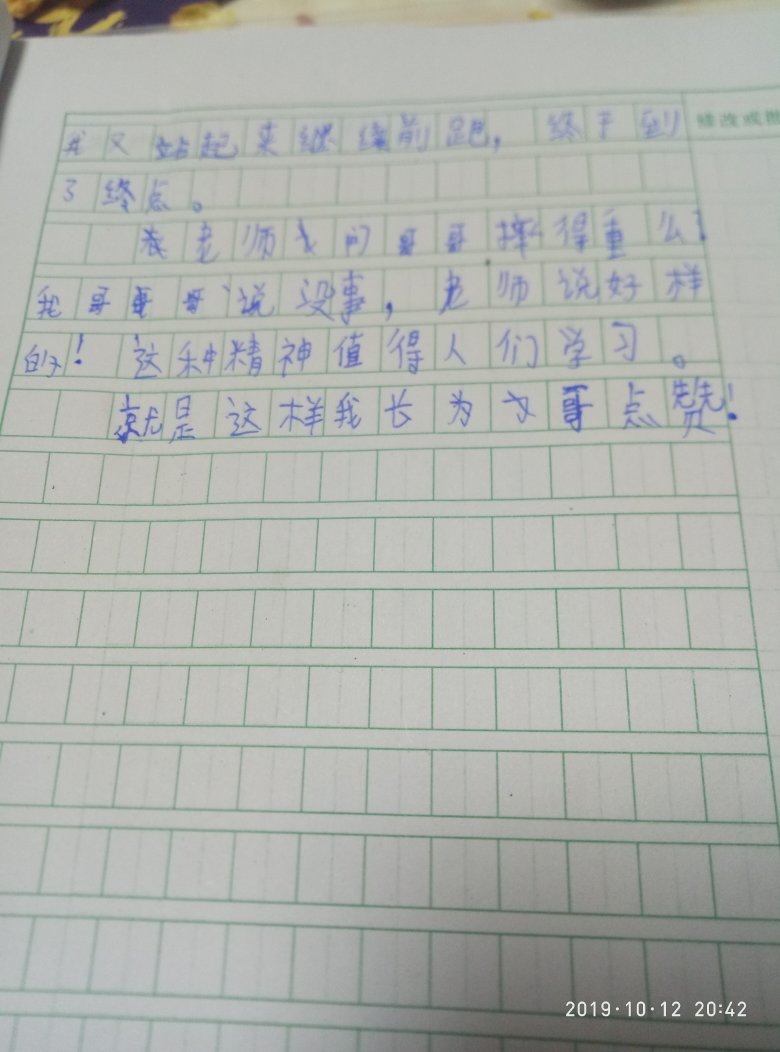 我又站起来继续前跑，终于到
了终点。
老师我问哥哥摔得重么！
我哥哥哥说没事，老师说好样
的！这种精神值得人们学习。
就是这样我长为文哥点赞！
修改或
2019·10·12 20:42